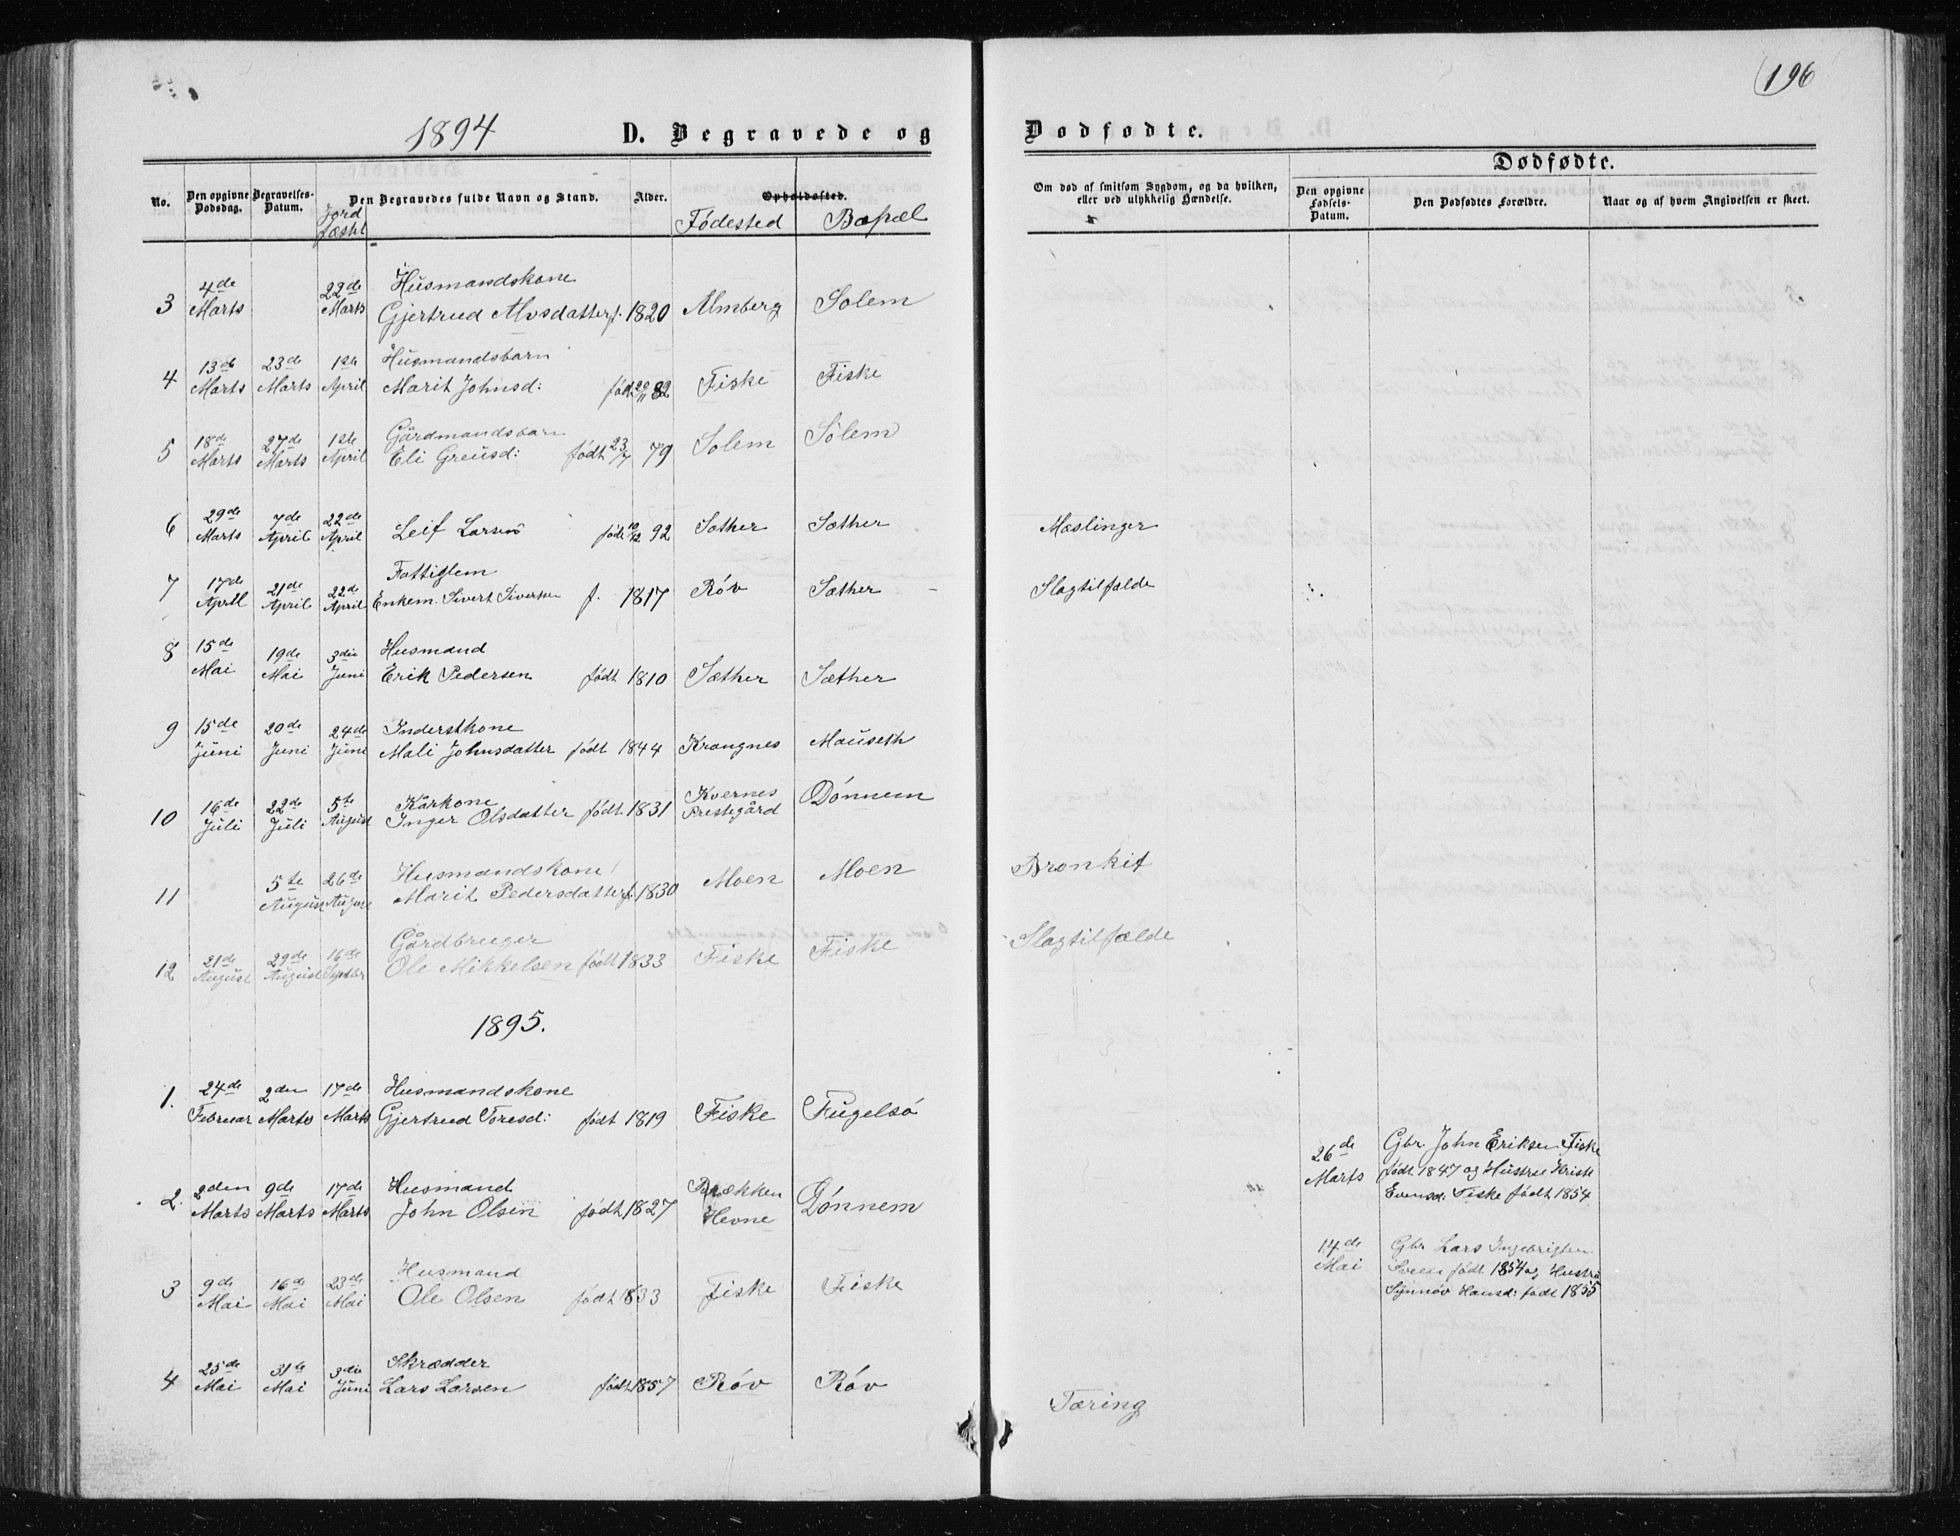 196
1894 D. Begravede og Dødfødte.
Dødfødte.
No. Den opgivne Dødsdag. Begravelses-Datum. Jord fæstet Den Begravedes fulde Navn og Stand. Alder. Opholdssted. Fødested Bopæl
Om død af smitsom Sygdom, og da hvilken, eller ved ulykkelig Hændelse. Den opgivne Fødsels-Datum. Den Dødfødtes Forældre. Naar og af hvem Angivelsen er skeet.
4de 22de Husmandskone
3 Marts Marts Gjertrud Alvsdatter f. 1820 Almberg Solem
13de 23de 1ste Husmandsbarn
4 Marts Marts April Marit Johnsd: født 20/11 82 Fiske Fiske
18de 27de 1ste Gårdmandsbarn
5 Marts Marts April Eli Greusd: født 23/7 79 Solem Solem
29de 7de 22de
6 Marts April April Leif Larsen født 10/12 92 Sæther Sæther Mæslinger
17de 21de 22de Fattiglem
7 April April April Enkem. Sivert Sivertsen f. 1817 Røv Sæther Slagtilfælde
15de 19de 3die Husmand
8 Mai Mai Juni Erik Pedersen født 1810 Sæther Sæther
15de 20de 24de Inderstkone
9 Juni Juni Juni Mali Johnsdatter født 1844 Krangnes Mauseth
16de 22de 5te Kårkone Kvernes
10 Juli Juli August Inger Olsdatter født 1831 Prestegård Dønnem
5te 26de Husmandskone
11 August August Marit Pedersdatter f. 1830 Moen Moen Bronkit
21de 29de 16de Gårdbruger
12 August August Septbr Ole Mikkelsen født 1833 Fiske Fiske Slagtilfælde
1895.
24de 2den 17de Husmandskone
1. Februar Marts Marts Gjertrud Toresd: født 1819 Fiske Fugelsø
26de Marts Gbr. John Eriksen Fiske
født 1847 og Hustru Kristi
Evensd: Fiske født 1854.
2den 9de 17de Husmand Brækken
2. Marts Marts Marts John Olsen født 1827 Hevne Dønnem
14de Mai Gbr Lars Ingebrigtsen
Sveen født 1854 og Hustru
Synnøv Hansd: født 1855
9de 16de 23de Husmand
3 Mai Mai Mai Ole Olsen født 1833 Fiske Fiske
25de 31te 3die Skrædder
4 Mai Mai Juni Lars Larsen født 1857 Røv Røv Tæring